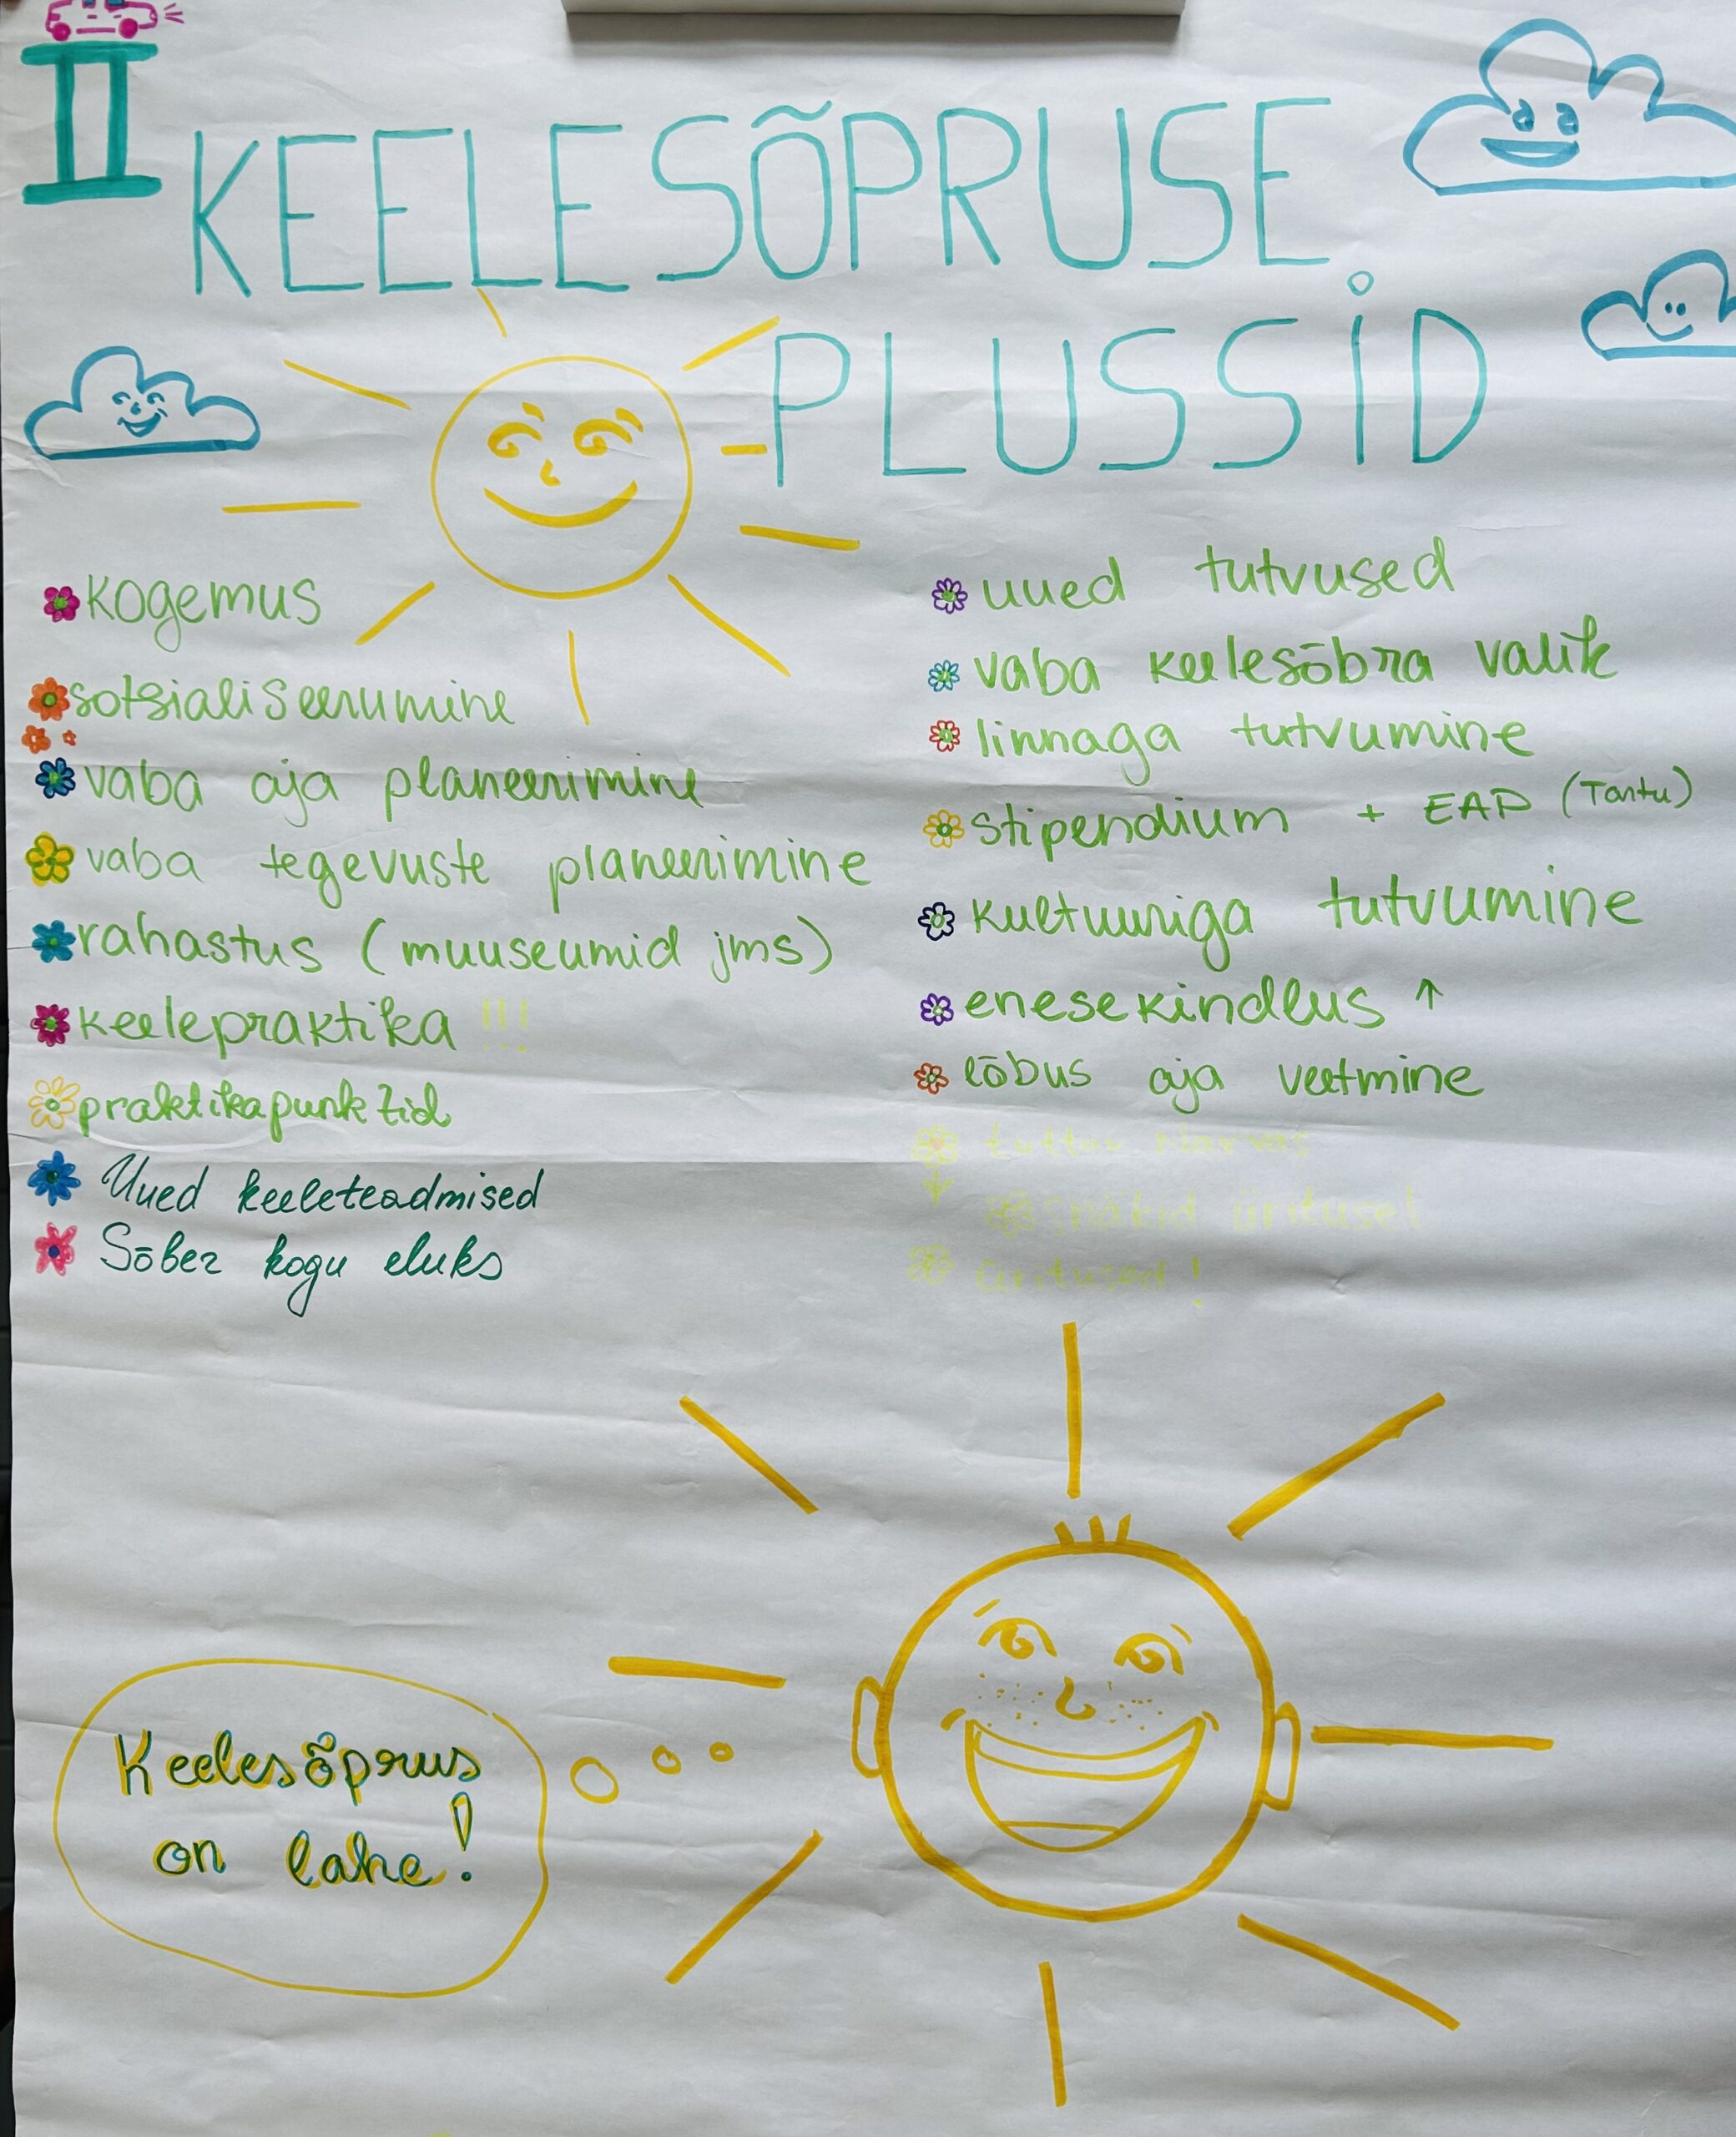 II
KEELESÕPRUSE
PLUSSID
kogemus
sotsialiseerumine
vaba aja planeerimine
vaba tegevuste planeerimine
rahastus (muuseumid jms)
keelepraktika !!!
praktikapunktid
Uued keeleteadmised
Sõber kogu eluks
uued tutvused
vaba keelesõbra valik
linnaga tutvumine
stipendium + EAP (Tartu)
kultuuriga tutvumine
enesekindlus ↑
lõbus aja veetmine
snäkid üritusel
üritused!
Keelesõprus
on lahe!